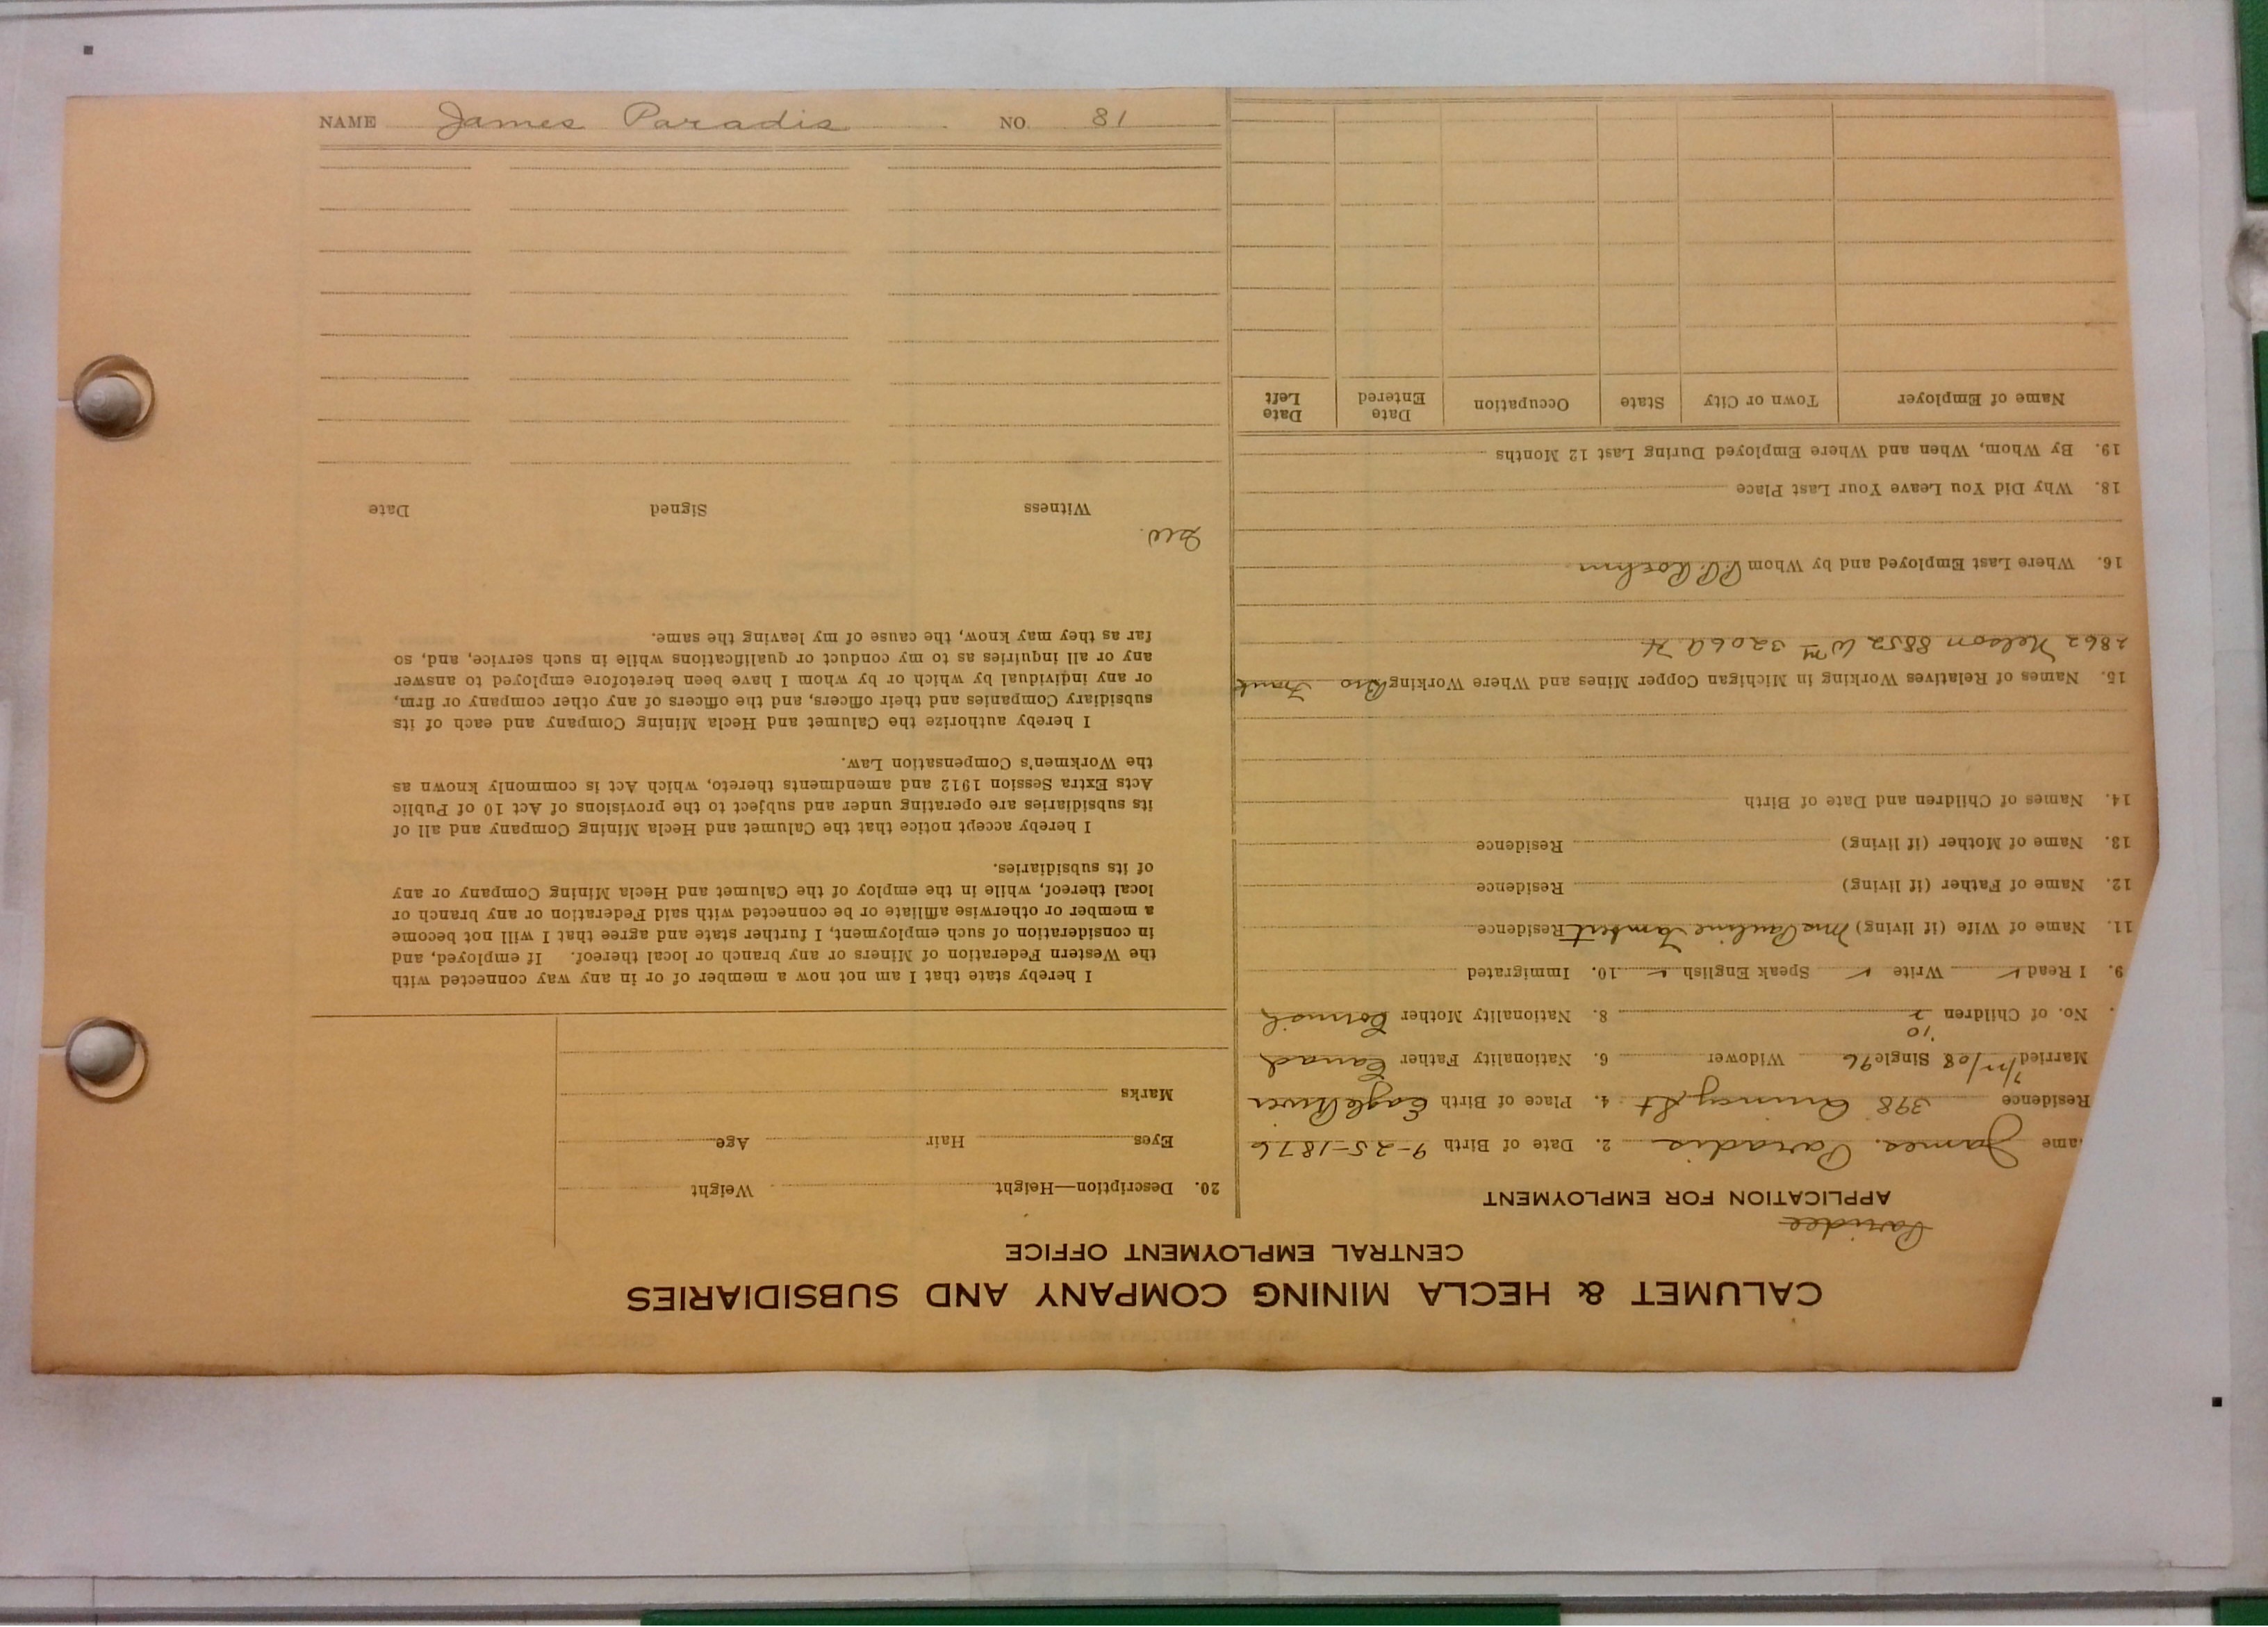 CALUMET & HECLA MINING COMPANY AND SUBSIDIARIES
CENTRAL EMPLOYMENT OFFICE
APPLICATION FOR EMPLOYMENT
ame James Paradis 2. Date of Birth 9-25-1876
Residence 398 Quincy St 4. Place of Birth Eagle River
Married 7/21/08 Single 96 Widower 6. Nationality Father Canad
No. of Children 2 '10 8. Nationality Mother Cornish
9. I Read ✓ Write ✓ Speak English ✓ 10. Immigrated
11. Name of Wife (if living) Mrs Pauline Lambert Residence
12. Name of Father (if living) Residence
13. Name of Mother (if living) Residence
14. Names of Children and Date of Birth
15. Names of Relatives Working in Michigan Copper Mines and Where Working Bro Frank
2862 Nelson 8852 Wm 3206 A H
16. Where Last Employed and by Whom
18. Why Did You Leave Your Last Place
19. By Whom, When and Where Employed During Last 12 Months
Name of Employer Town or City State Occupation Date Entered Date Left
20. Description—Height Weight
Eyes Hair Age
Marks
I hereby state that I am not now a member of or in any way connected with
the Western Federation of Miners or any branch or local thereof. If employed, and
in consideration of such employment, I further state and agree that I will not become
a member or otherwise affiliate or be connected with said Federation or any branch or
local thereof, while in the employ of the Calumet and Hecla Mining Company or any
of its subsidiaries.
I hereby accept notice that the Calumet and Hecla Mining Company and all of
its subsidiaries are operating under and subject to the provisions of Act 10 of Public
Acts Extra Session 1912 and amendments thereto, which Act is commonly known as
the Workmen's Compensation Law.
I hereby authorize the Calumet and Hecla Mining Company and each of its
subsidiary Companies and their officers, and the officers of any other company or firm,
or any individual by which or by whom I have been heretofore employed to answer
any or all inquiries as to my conduct or qualifications while in such service, and, so
far as they may know, the cause of my leaving the same.
Witness Signed Date
NAME James Paradis NO. 81